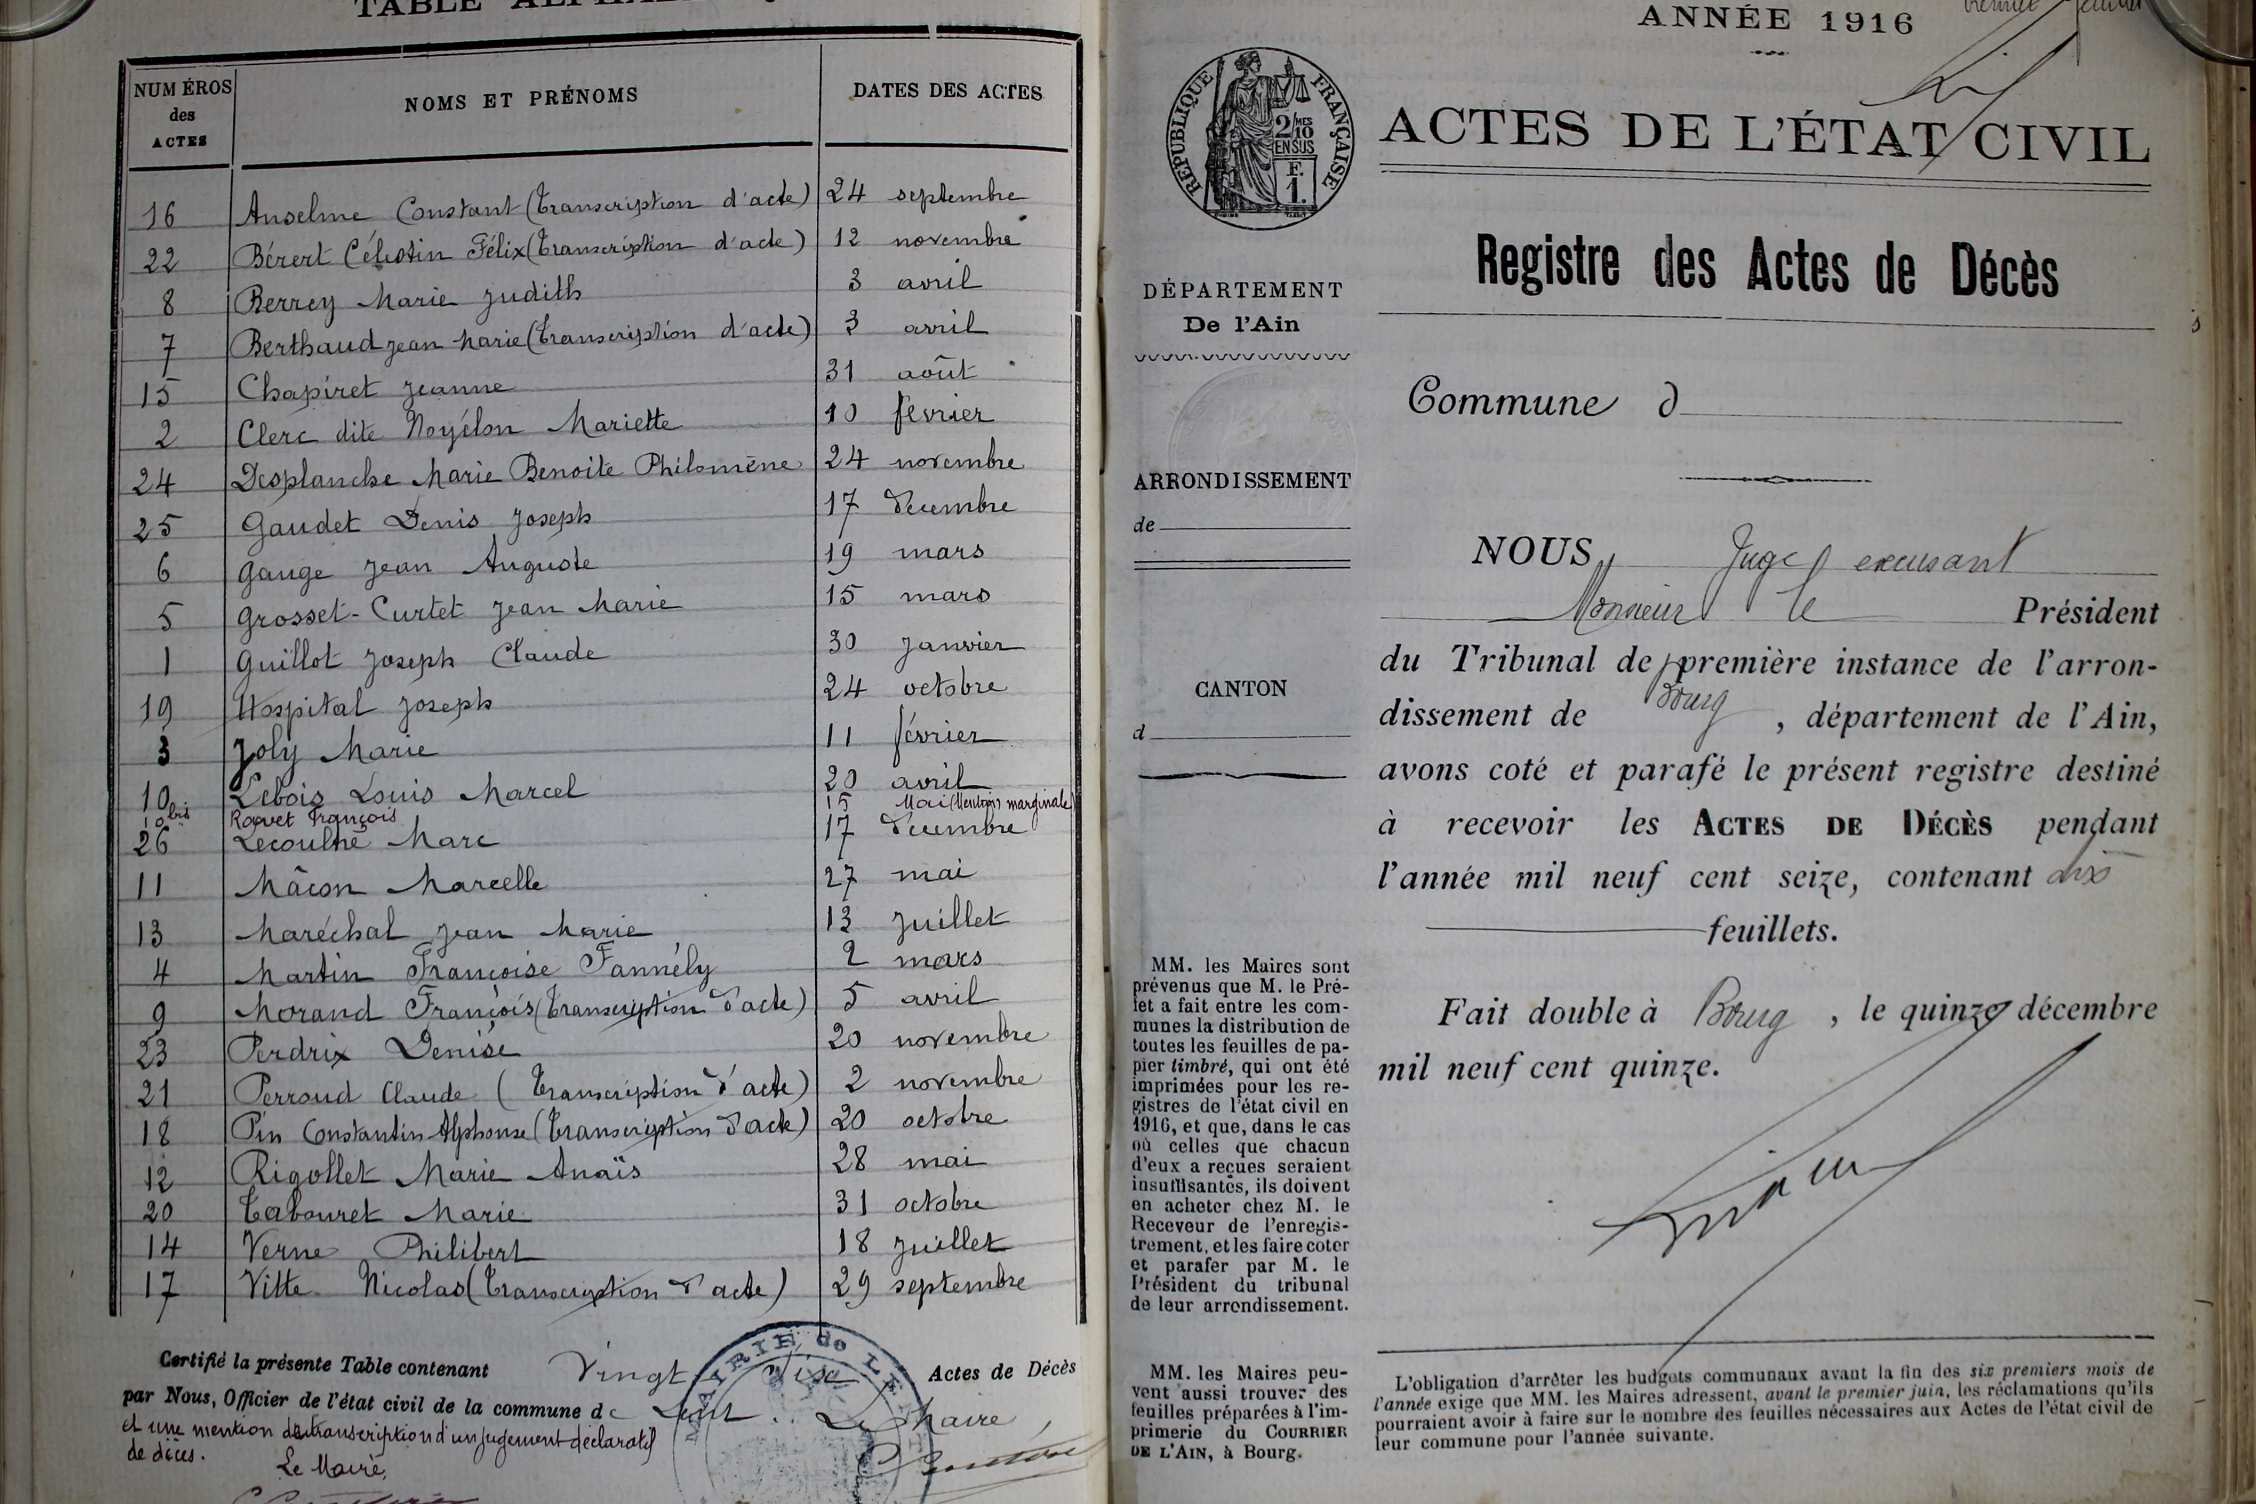 TABLE
NUMÉROS des ACTES NOMS ET PRÉNOMS DATES DES ACTES
16 Anselme Constant (Transcription d'acte) 24 septembre
22 Bérert Célestin Félix (Transcription d'acte) 12 novembre
8 Berrey Marie Judith 3 avril
7 Berthaud Jean Marie (Transcription d'acte) 3 avril
15 Chapiret Jeanne 31 août
2 Clerc dite Noyélon Mariette 10 février
24 Desplanche Marie Benoite Philomène 24 novembre
25 Gaudet Denis Joseph 17 décembre
6 Gauge Jean Auguste 19 mars
5 Grosset-Curtet Jean Marie 15 mars
1 Guillot Joseph Claude 30 Janvier
19 Hospital Joseph 24 octobre
3 Joly Marie 11 février
10 Lebois Louis Marcel 20 avril
10 bis Roquet François 15 Mai (Mention marginale)
26 Lecoultre Marc 17 décembre
11 Mâcon Marcelle 27 mai
13 Maréchal Jean Marie 13 Juillet
4 Martin Françoise Fannély 2 mars
9 Morand François (Transcription d'acte) 5 avril
23 Perdrix Denise 20 novembre
21 Perroud Claude (Transcription d'acte) 2 novembre
18 Pin Constantin Alphonse (Transcription d'acte) 20 octobre
12 Rigollet Marie Anaïs 28 mai
20 Tabouret Marie 31 octobre
14 Verne Philibert 18 Juillet
17 Vitte Nicolas (Transcription d'acte) 29 septembre
Certifié la présente Table contenant Vingt six Actes de Décès
par Nous, Officier de l'état civil de la commune de Lent. Le Maire,
et une mention de transcription d'un jugement déclaratif
de décès.
Le Maire,
MAIRIE de LE
ANNÉE 1916
RÉPUBLIQUE FRANÇAISE
2/10 MES
EN SUS
F.
1.
ACTES DE L'ÉTAT CIVIL
Registre des Actes de Décès
DÉPARTEMENT
De l'Ain
Commune d
ARRONDISSEMENT
de
CANTON
d
NOUS, Juge excusant
Monsieur le Président
du Tribunal de première instance de l'arron-
dissement de Bourg, département de l'Ain,
avons coté et parafé le présent registre destiné
à recevoir les ACTES DE DÉCÈS pendant
l'année mil neuf cent seize, contenant dix
feuillets.
Fait double à Bourg, le quinze décembre
mil neuf cent quinze.
MM. les Maires sont
prévenus que M. le Pré-
fet a fait entre les com-
munes la distribution de
toutes les feuilles de pa-
pier timbré, qui ont été
imprimées pour les re-
gistres de l'état civil en
1916, et que, dans le cas
où celles que chacun
d'eux a reçues seraient
insuffisantes, ils doivent
en acheter chez M. le
Receveur de l'enregis-
trement, et les faire coter
et parafer par M. le
Président du tribunal
de leur arrondissement.
MM. les Maires peu-
vent aussi trouver des
feuilles préparées à l'im-
primerie du COURRIER
DE L'AIN, à Bourg.
L'obligation d'arrêter les budgets communaux avant la fin des six premiers mois de
l'année exige que MM. les Maires adressent, avant le premier juin, les réclamations qu'ils
pourraient avoir à faire sur le nombre des feuilles nécessaires aux Actes de l'état civil de
leur commune pour l'année suivante.